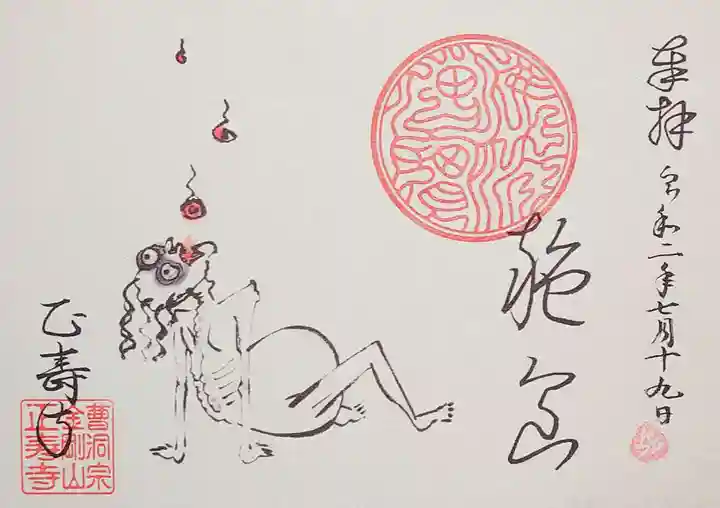 奉拝 令和二年七月十九日
施食
正寿寺
曹洞宗
金剛山
正寿寺